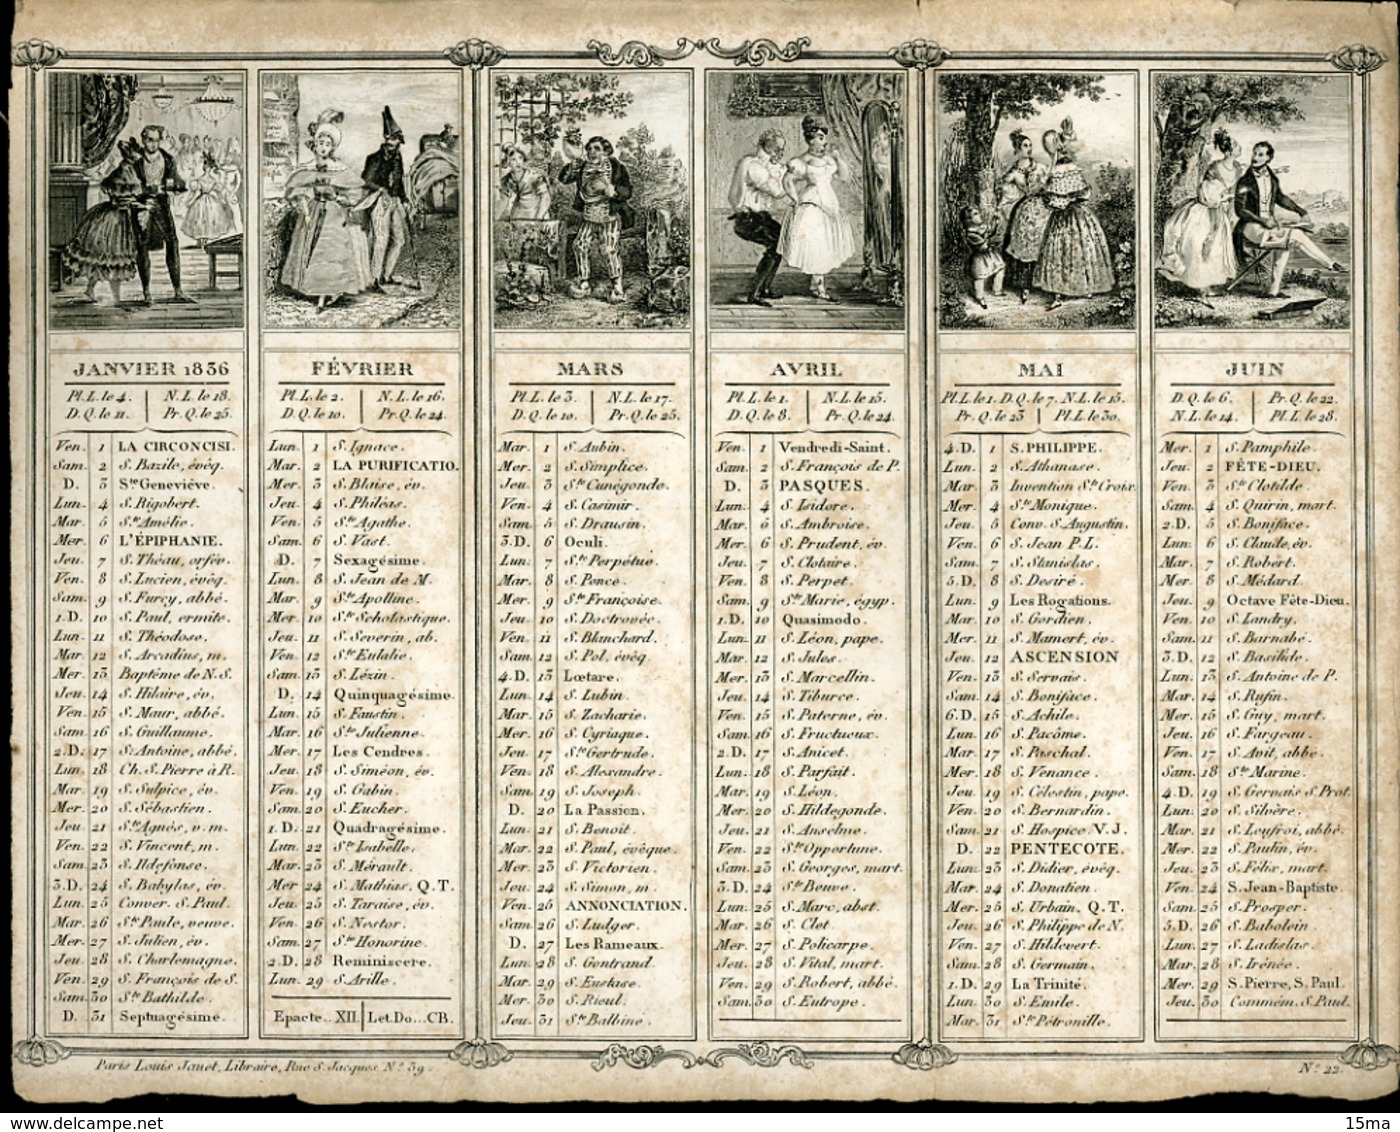 JANVIER 1836
Pl. L. le 4. N. L. le 18.
D. Q. le 11. Pr. Q. le 25.
Ven. 1 LA CIRCONCISI.
Sam. 2 S. Bazile, évêq.
D. 3 Ste Geneviève.
Lun. 4 S. Rigobert.
Mar. 5 Ste Amélie.
Mer. 6 L'ÉPIPHANIE.
Jeu. 7 S. Théau, orfév.
Ven. 8 S. Lucien, évêq.
Sam. 9 S. Furcy, abbé.
1.D. 10 S. Paul, ermite.
Lun. 11 S. Théodose.
Mar. 12 S. Arcadius, m.
Mer. 13 Baptême de N.S.
Jeu. 14 S. Hilaire, év.
Ven. 15 S. Maur, abbé.
Sam. 16 S. Guillaume.
2.D. 17 S. Antoine, abbé.
Lun. 18 Ch. S. Pierre à R.
Mar. 19 S. Sulpice, év.
Mer. 20 S. Sébastien.
Jeu. 21 Ste Agnès, v. m.
Ven. 22 S. Vincent, m.
Sam. 23 S. Ildefonse.
3.D. 24 S. Babylas, év.
Lun. 25 Conver. S. Paul.
Mar. 26 Ste Paule, veuve.
Mer. 27 S. Julien, év.
Jeu. 28 S. Charlemagne.
Ven. 29 S. François de S.
Sam. 30 Ste Bathilde.
D. 31 Septuagésime.
FÉVRIER
Pl. L. le 2. N. L. le 16.
D. Q. le 10. Pr. Q. le 24.
Lun. 1 S. Ignace.
Mar. 2 LA PURIFICATIO.
Mer. 3 S. Blaise, év.
Jeu. 4 S. Philéas.
Ven. 5 Ste Agathe.
Sam. 6 S. Vast.
D. 7 Sexagésime.
Lun. 8 S. Jean de M.
Mar. 9 Ste Apolline.
Mer. 10 Ste Scholastique.
Jeu. 11 S. Severin, ab.
Ven. 12 Ste Eulalie.
Sam. 13 S. Lézin.
D. 14 Quinquagésime.
Lun. 15 S. Faustin.
Mar. 16 Ste Julienne.
Mer. 17 Les Cendres.
Jeu. 18 S. Siméon, év.
Ven. 19 S. Gabin.
Sam. 20 S. Eucher.
1.D. 21 Quadragésime.
Lun. 22 Ste Isabelle.
Mar. 23 S. Mérault.
Mer. 24 S. Mathias. Q.T.
Jeu. 25 S. Taraise, év.
Ven. 26 S. Nestor.
Sam. 27 Ste Honorine.
2.D. 28 Reminiscere.
Lun. 29 S. Arille.
Epacte.. XII. Let. Do... CB.
MARS
Pl. L. le 3. N. L. le 17.
D. Q. le 10. Pr. Q. le 25.
Mar. 1 S. Aubin.
Mer. 2 S. Simplice.
Jeu. 3 Ste Cunégonde.
Ven. 4 S. Casimir.
Sam. 5 S. Drausin.
3.D. 6 Oculi.
Lun. 7 Ste Perpétue.
Mar. 8 S. Ponce.
Mer. 9 Ste Françoise.
Jeu. 10 S. Doctrovée.
Ven. 11 S. Blanchard.
Sam. 12 S. Pol, évêq.
4.D. 13 Lœtare.
Lun. 14 S. Lubin.
Mar. 15 S. Zacharie.
Mer. 16 S. Cyriaque.
Jeu. 17 Ste Gertrude.
Ven. 18 S. Alexandre.
Sam. 19 S. Joseph.
D. 20 La Passion.
Lun. 21 S. Benoit.
Mar. 22 S. Paul, évêque.
Mer. 23 S. Victorien.
Jeu. 24 S. Simon, m.
Ven. 25 ANNONCIATION.
Sam. 26 S. Ludger.
D. 27 Les Rameaux.
Lun. 28 S. Gontrand.
Mar. 29 S. Eustase.
Mer. 30 S. Rieul.
Jeu. 31 Ste Balbine.
AVRIL
Pl. L. le 1. N. L. le 15.
D. Q. le 8. Pr. Q. le 24.
Ven. 1 Vendredi-Saint.
Sam. 2 S. François de P.
D. 3 PASQUES.
Lun. 4 S. Isidore.
Mar. 5 S. Ambroise.
Mer. 6 S. Prudent, év.
Jeu. 7 S. Clotaire.
Ven. 8 S. Perpet.
Sam. 9 Ste Marie, égyp.
1.D. 10 Quasimodo.
Lun. 11 S. Léon, pape.
Mar. 12 S. Jules.
Mer. 13 S. Marcellin.
Jeu. 14 S. Tiburce.
Ven. 15 S. Paterne, év.
Sam. 16 S. Fructueux.
2.D. 17 S. Anicet.
Lun. 18 S. Parfait.
Mar. 19 S. Léon.
Mer. 20 S. Hildegonde.
Jeu. 21 S. Anselme.
Ven. 22 Ste Opportune.
Sam. 23 S. Georges, mart.
3.D. 24 Ste Beuve.
Lun. 25 S. Marc, abst.
Mar. 26 S. Clet.
Mer. 27 S. Policarpe.
Jeu. 28 S. Vital, mart.
Ven. 29 S. Robert, abbé.
Sam. 30 S. Eutrope.
MAI
Pl. L. le 1. D. Q. le 7. N. L. le 15.
Pr. Q. le 23 Pl. L. le 30.
4.D. 1 S. PHILIPPE.
Lun. 2 S. Athanase.
Mar. 3 Invention Ste Croix.
Mer. 4 Ste Monique.
Jeu. 5 Conv. S. Augustin.
Ven. 6 S. Jean P. L.
Sam. 7 S. Stanislas.
5.D. 8 S. Desiré.
Lun. 9 Les Rogations.
Mar. 10 S. Gordien.
Mer. 11 S. Mamert, év.
Jeu. 12 ASCENSION
Ven. 13 S. Servais.
Sam. 14 S. Boniface.
6.D. 15 S. Achile.
Lun. 16 S. Pacôme.
Mar. 17 S. Paschal.
Mer. 18 S. Venance.
Jeu. 19 S. Célestin, pape.
Ven. 20 S. Bernardin.
Sam. 21 S. Hospice V.J.
D. 22 PENTECOTE.
Lun. 23 S. Didier, évêq.
Mar. 24 S. Donatien.
Mer. 25 S. Urbain, Q.T.
Jeu. 26 S. Philippe de N.
Ven. 27 S. Hildevert.
Sam. 28 S. Germain.
1.D. 29 La Trinité.
Lun. 30 S. Emile.
Mar. 31 Ste Pétronille.
JUIN
D. Q. le 6. Pr. Q. le 22.
N. L. le 14. Pl. L. le 28.
Mer. 1 S. Pamphile.
Jeu. 2 FÊTE-DIEU.
Ven. 3 Ste Clotilde.
Sam. 4 S. Quirin, mart.
2.D. 5 S. Boniface.
Lun. 6 S. Claude, év.
Mar. 7 S. Robert.
Mer. 8 S. Médard.
Jeu. 9 Octave Fête-Dieu.
Ven. 10 S. Landry.
Sam. 11 S. Barnabé.
3.D. 12 S. Basilide.
Lun. 13 S. Antoine de P.
Mar. 14 S. Rufin.
Mer. 15 S. Guy, mart.
Jeu. 16 S. Fargeau.
Ven. 17 S. Avit, abbé.
Sam. 18 Ste Marine.
4.D. 19 S. Gervais S. Prot.
Lun. 20 S. Silvère.
Mar. 21 S. Leufroi, abbé.
Mer. 22 S. Paulin, év.
Jeu. 23 S. Félix, mart.
Ven. 24 S. Jean-Baptiste.
Sam. 25 S. Prosper.
5.D. 26 S. Babolein.
Lun. 27 S. Ladislas.
Mar. 28 S. Irénée.
Mer. 29 S. Pierre, S. Paul.
Jeu. 30 Commém. S. Paul.
Paris Louis Janet, Libraire, Rue S. Jacques No. 59.
No. 22.
www.delcampe.net
15ma